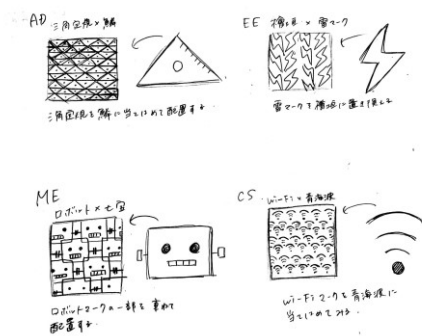 AD 三角定規×鱗
三角定規を鱗に当てはめて配置する
EE 檜垣 × 雷マーク
雷マークを檜垣に置き換える
ME
ロボット×七宝
ロボットマークの一部を重ねて
配置する
CS wi-Fi×青海波
wi-Fiマークを青海波に
当てはめてみる